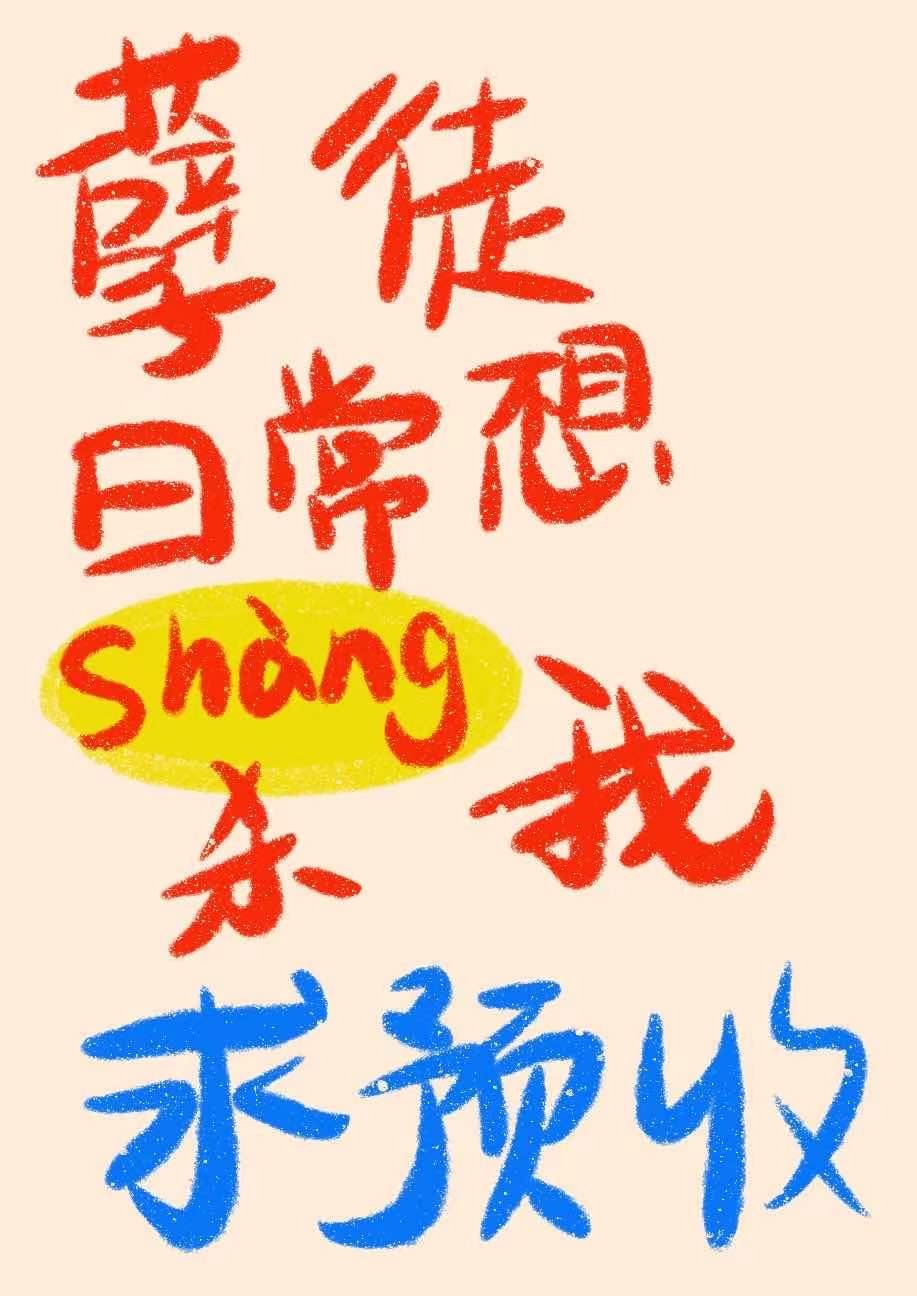 孽徒
日常想
shàng
杀我
求预收